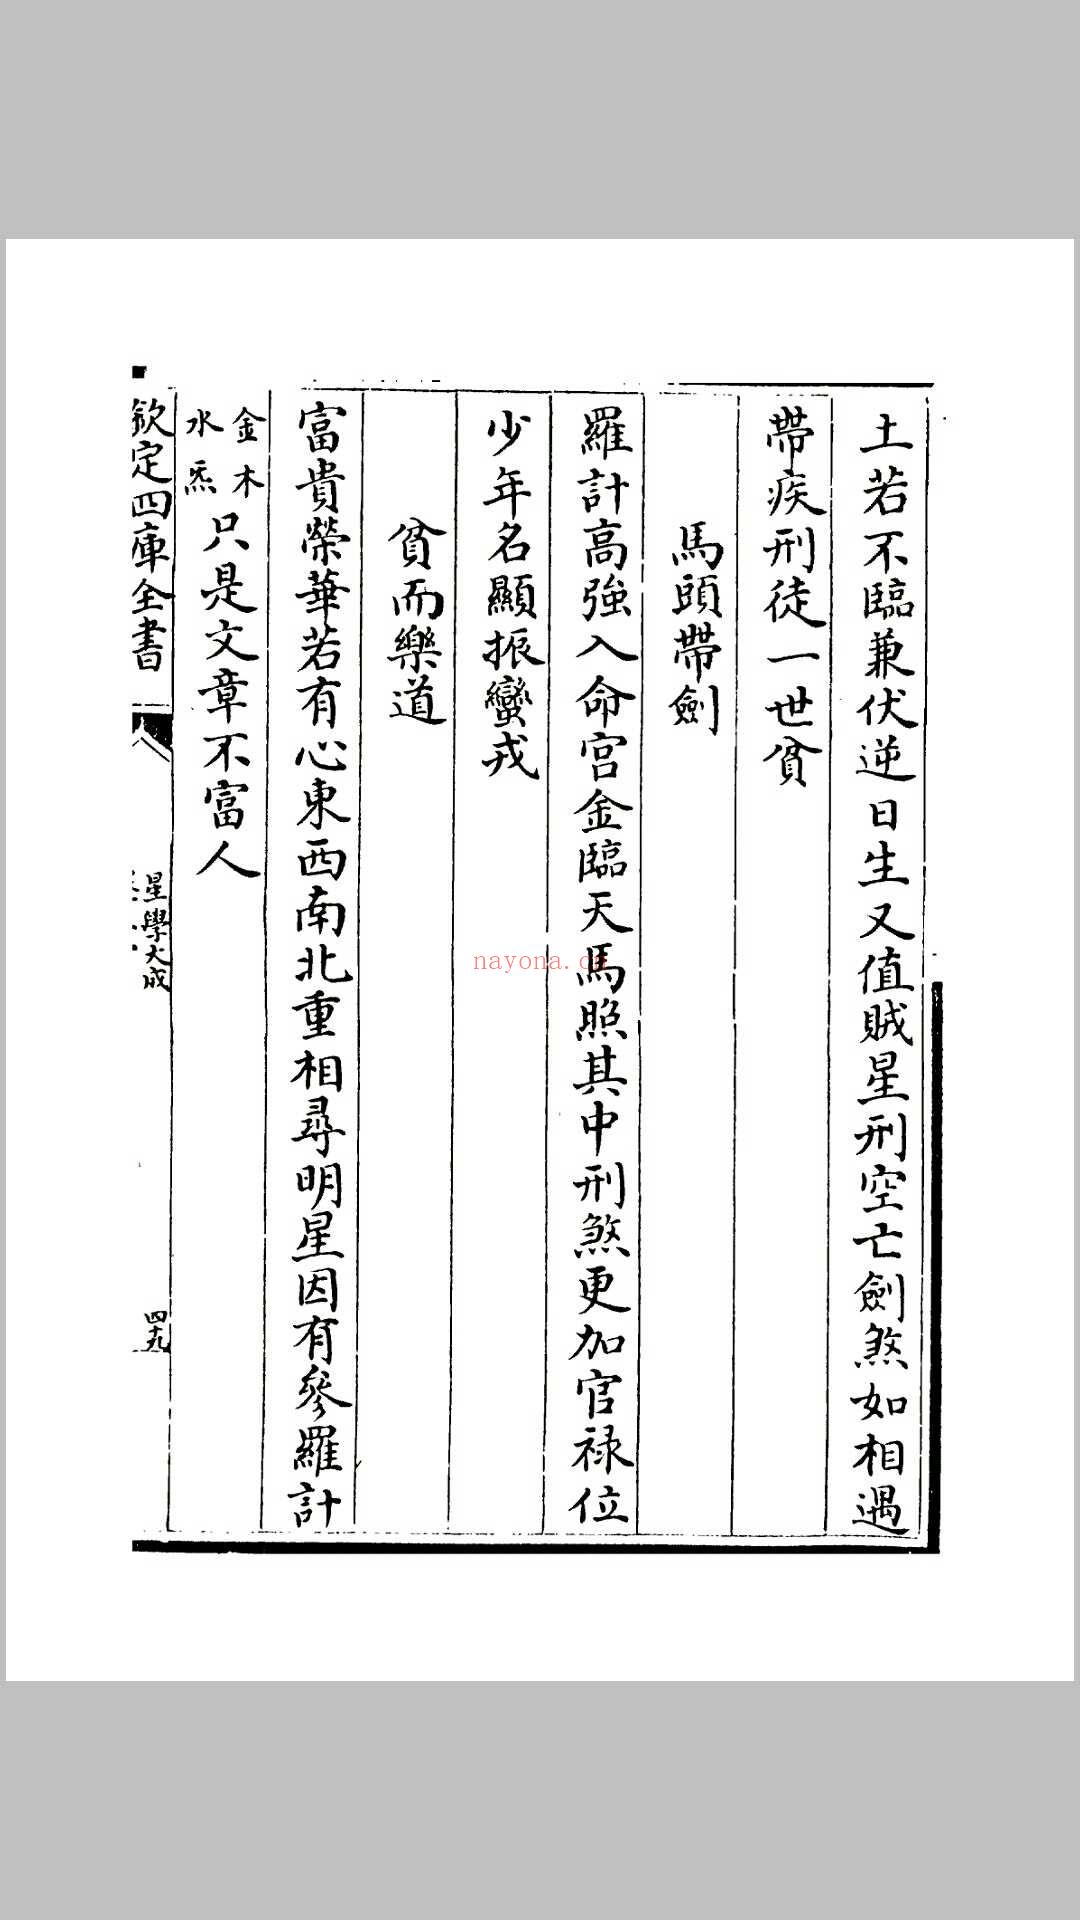 土若不臨兼伏逆日生又值賊星刑空亡劍煞如相遇
帶疾刑徒一世貧
馬頭帶劍
羅計高強入命宮金臨天馬照其中刑煞更加官祿位
少年名顯振蠻戎
貧而樂道
富貴榮華若有心東西南北重相尋明星因有參羅計
金木
水炁
只是文章不富人
欽定四庫全書
星學大成
四十九
nayona.cn